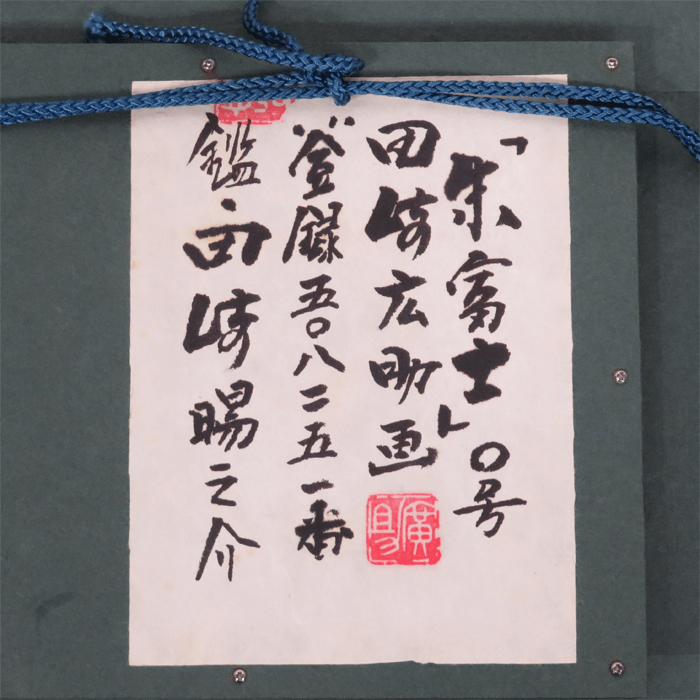 「朱富士」〇号
田崎広助画
登録五〇八二五一番
鑑 田崎賜之介